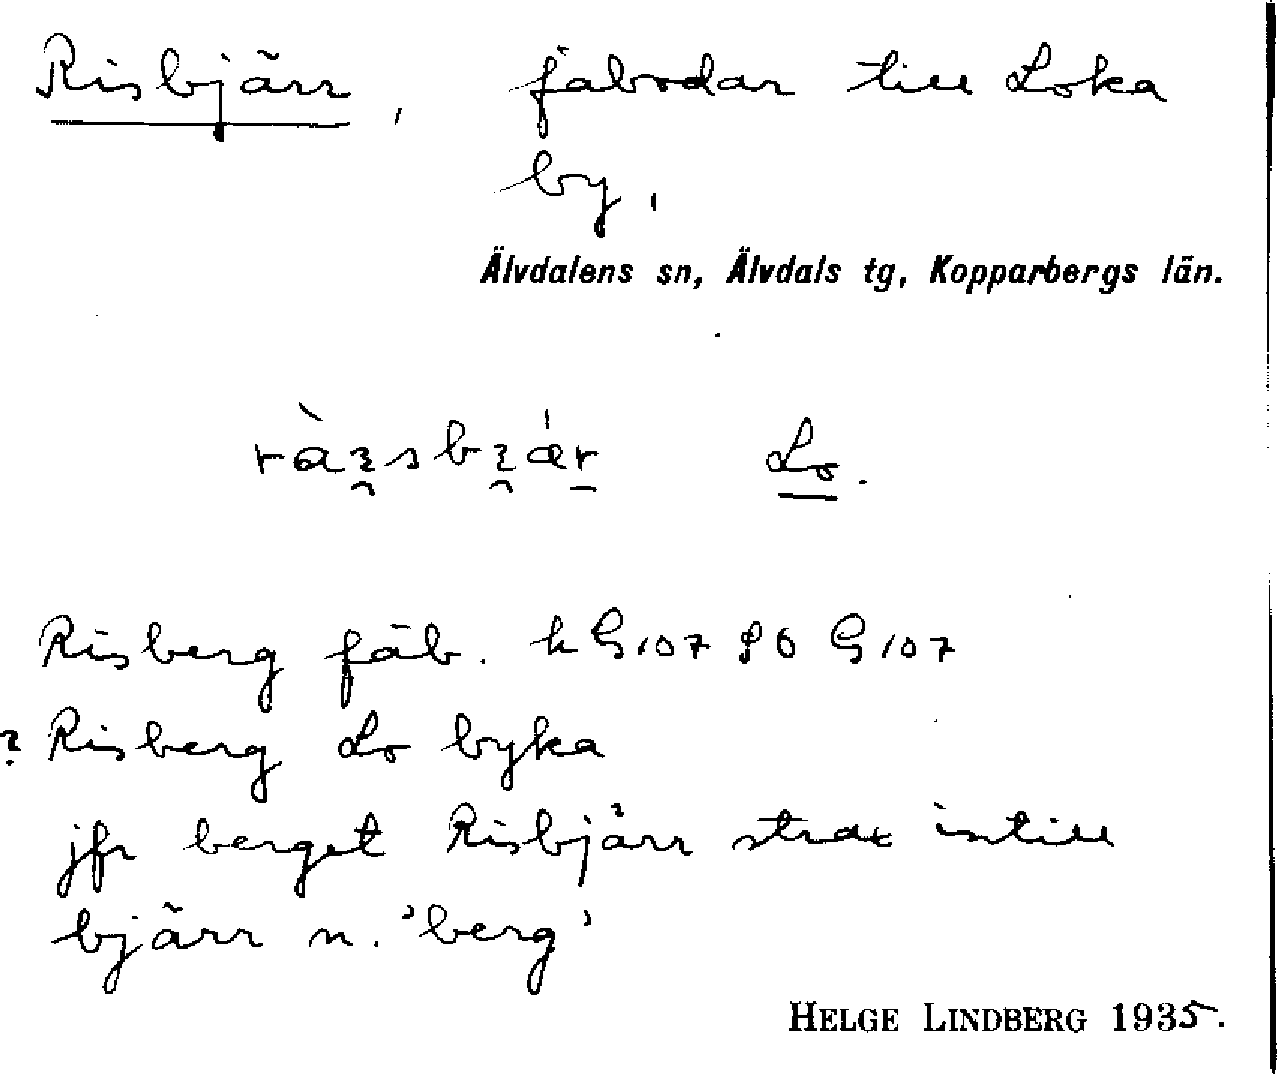 Risbjärr, fäbodar till Loka
by,
Älvdalens sn, Älvdals tg, Kopparbergs län.
Lo.
Risberg fäb. k G107 SO G107
? Risberg Lo byka
jfr berget Risbjärr strax intill
bjärr n. 'berg'
HELGE LINDBERG 1935.